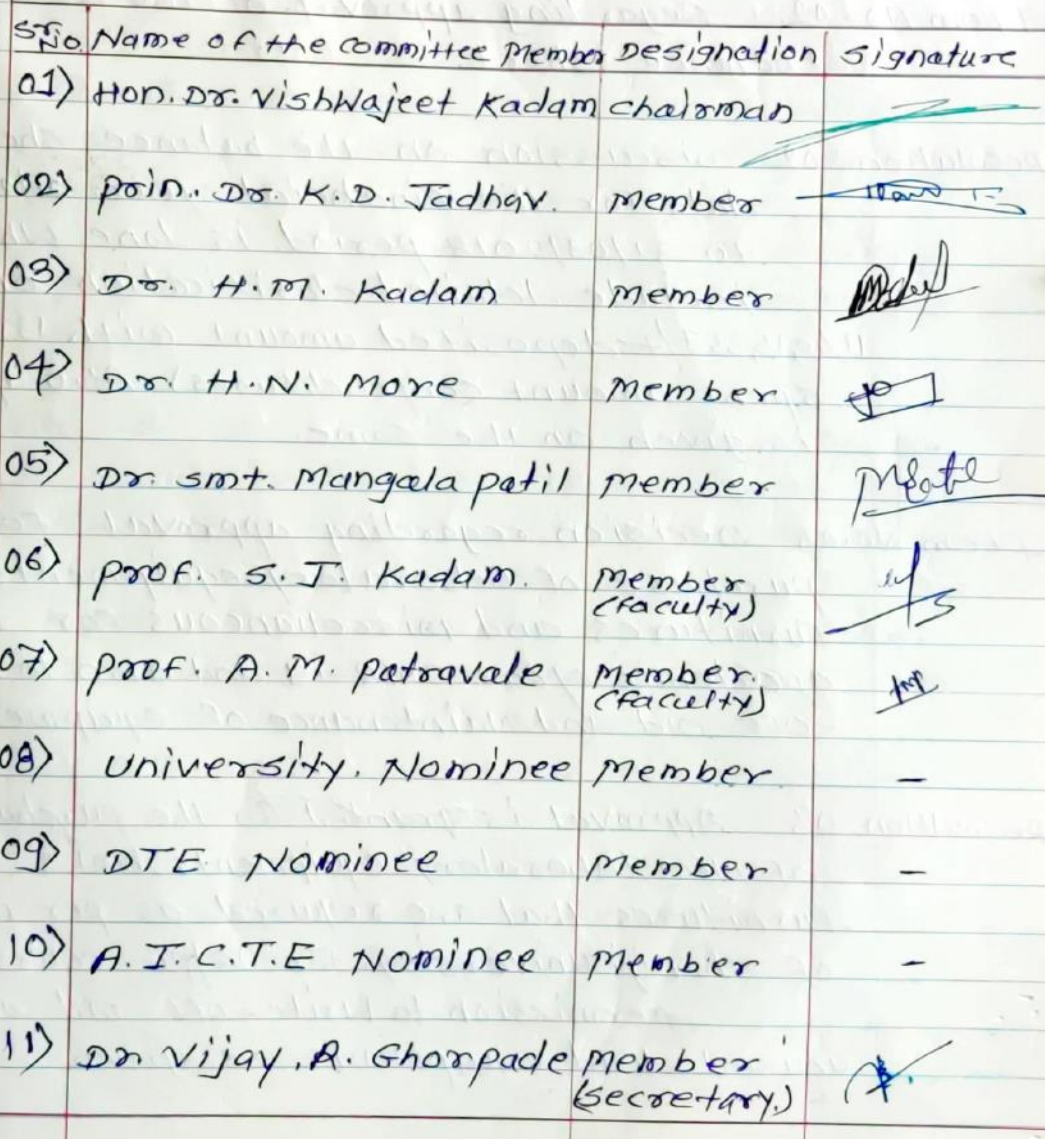 Sr. No. Name of the committee Member Designation Signature
01) Hon. Dr. Vishwajeet Kadam Chairman
02) Prin. Dr. K. D. Jadhav. Member
03) Dr. H. M. Kadam Member
04) Dr. H. N. More Member
05) Dr. Smt. Mangala Patil Member
06) Prof. S. J. Kadam. Member
(faculty)
07) Prof. A. M. Patravale Member.
(faculty)
08) University. Nominee Member -
09) DTE Nominee Member -
10) A.I.C.T.E Nominee Member -
11) Dr. Vijay. R. Ghorpade Member
(Secretary.)